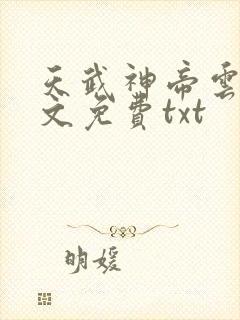 天武神帝雲
文免費txt
明媛